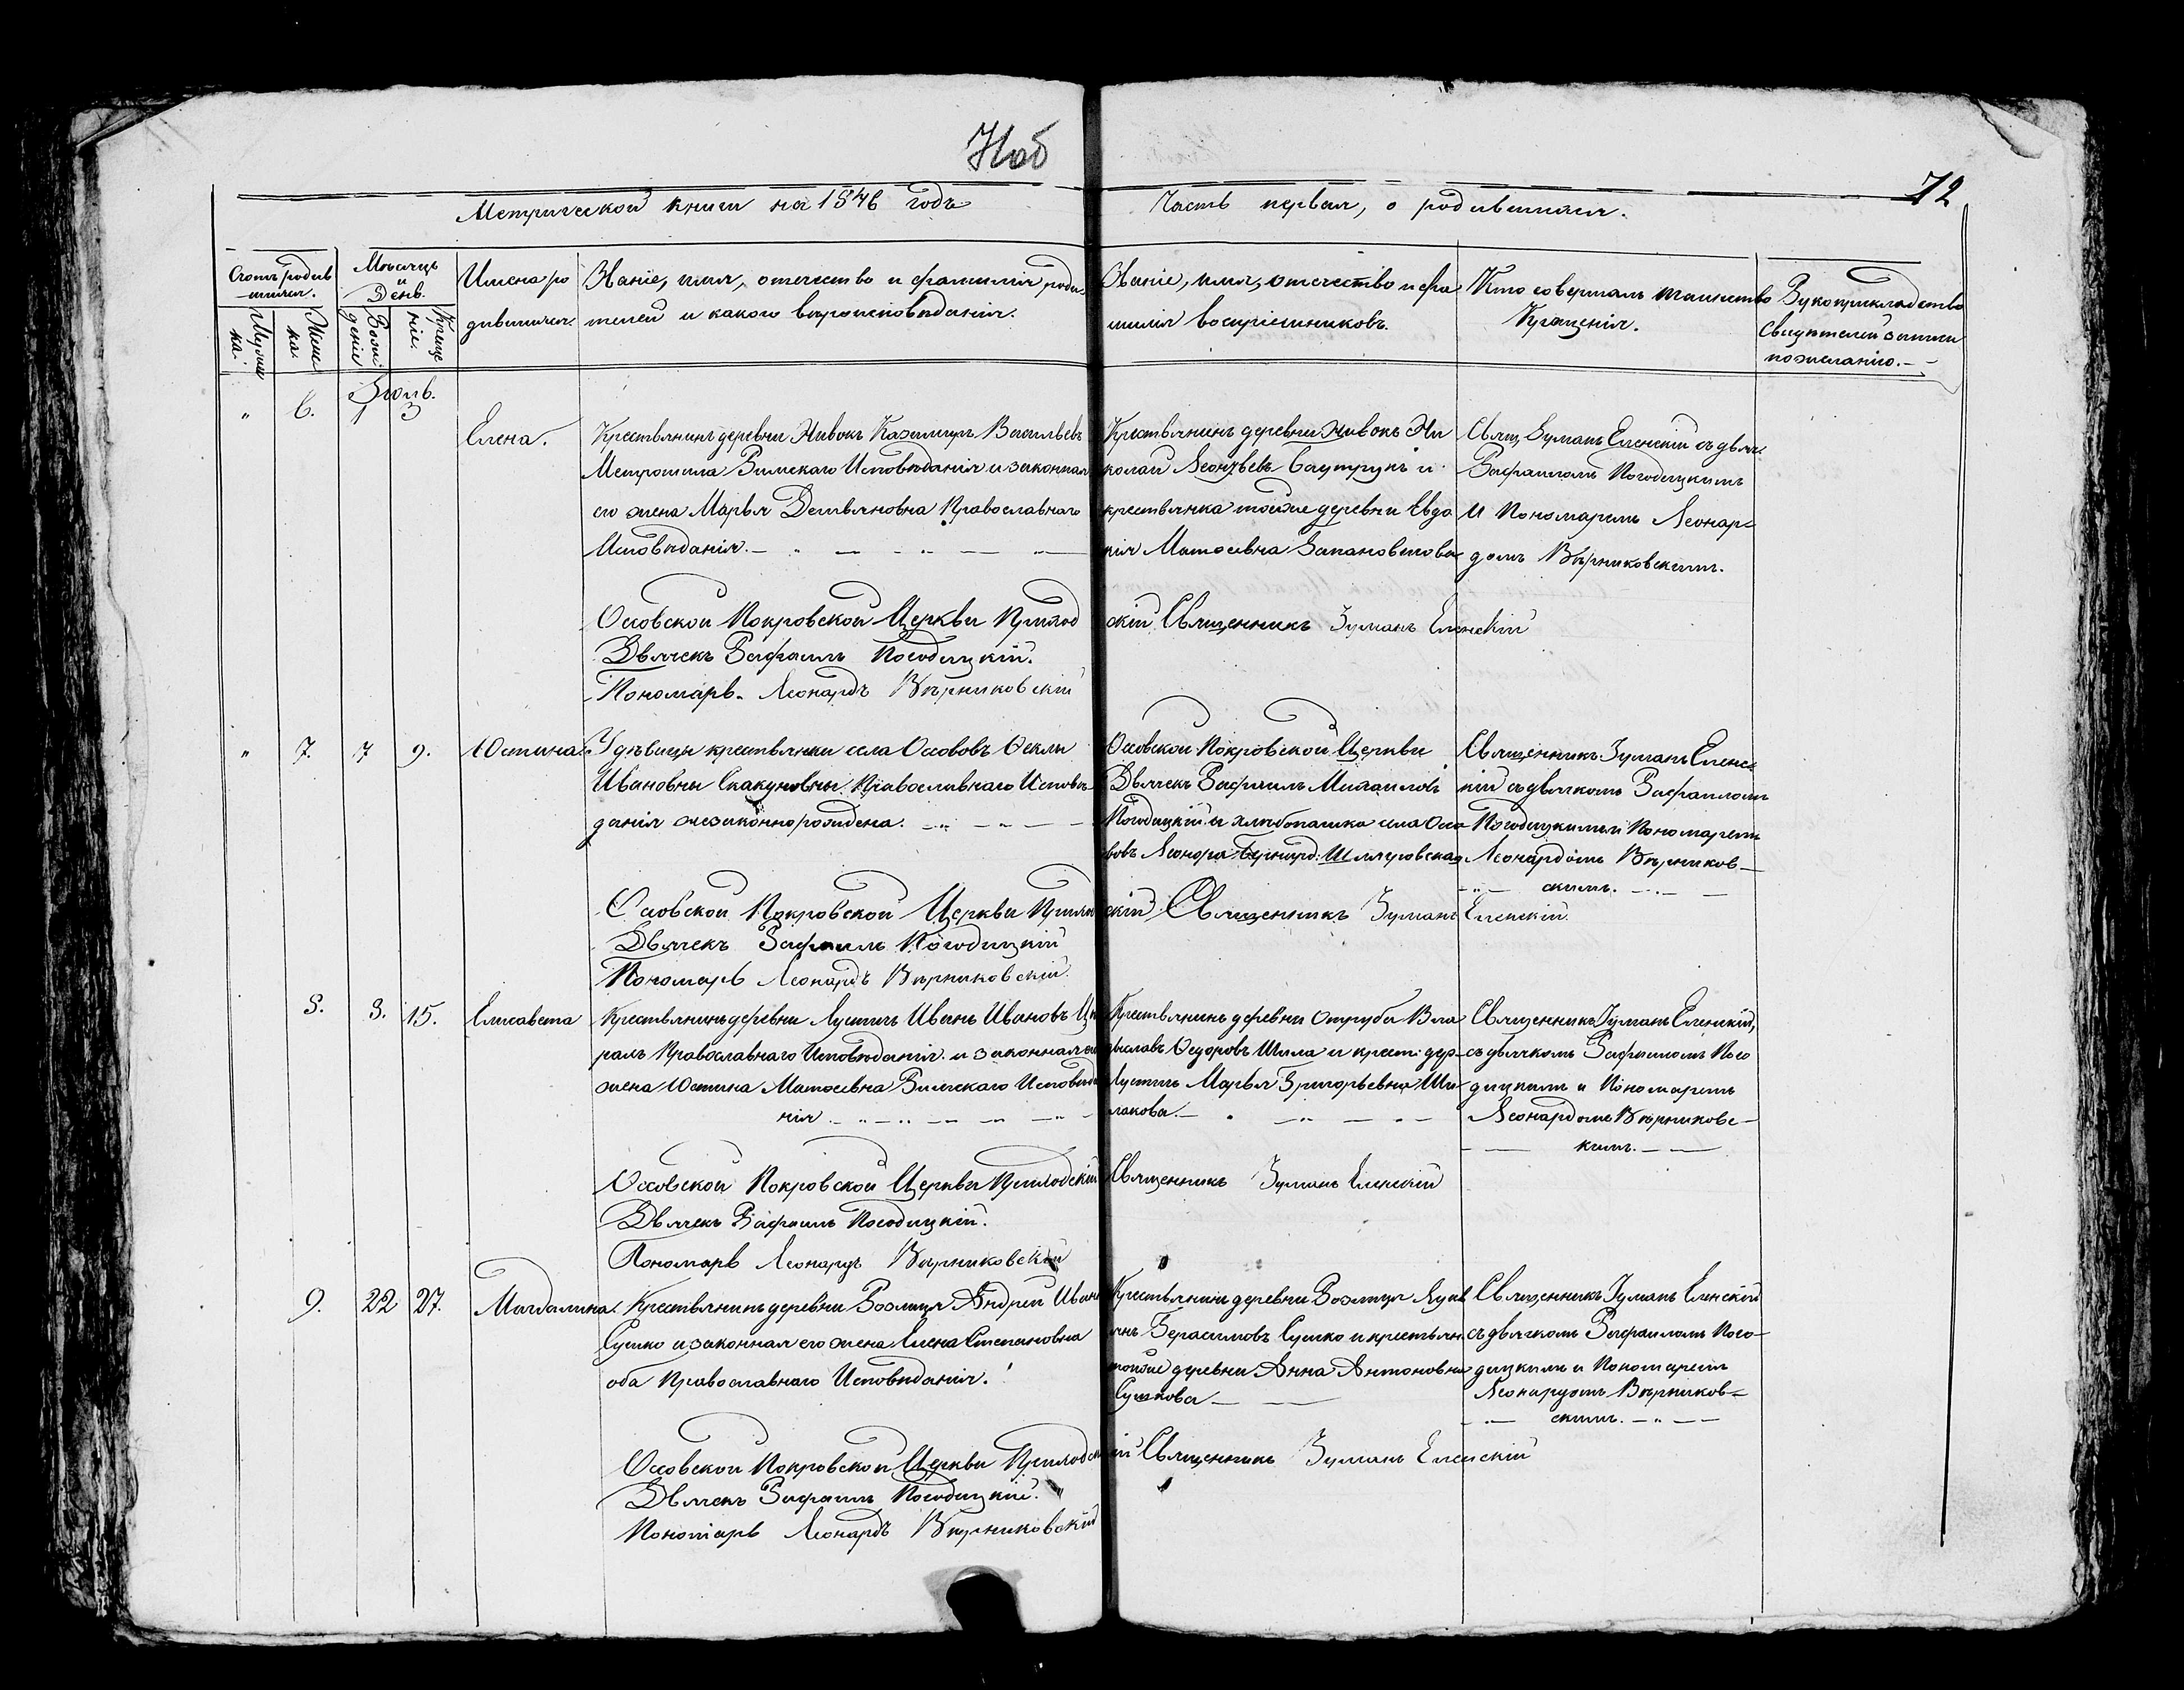 72
Метрической книги на 1846 годъ
Часть первая, о родившихся.
Счетъ родив
шихся.
Мѣсяцъ
и
День.
Имена ро
дившихся.
Званіе, имя, отечество и фамилія роди-
телей и какого вѣроисповѣданія.
Званіе, имя, отечество и фа
милія воспріемниковъ.
Кто совершалъ таинство
Крещенія.
Рукоприкладство
Свидѣтелей записи
по желанію.
Муже
ка.
Женс
ка.
Рож
деніе
Креще
ніе.
Іюль.
" 6. 1 3
Елена.
Крестьянинъ деревни Нивокъ Казимиръ Васильевъ
Римскаго Исповѣданія и законная
его жена Марья Демьяновна Православнаго
Исповѣданія.
Крестьянинъ деревни Нивокъ Ни
колай Леонтьевъ и
крестьянка тойже деревни Евдо
кія Матвеевна
Свящ. Іуліанъ Еленскій съ дьяч.
Рафаиломъ Погодицкимъ
и Пономаремъ Леонар-
домъ Вѣрниковскимъ.
Осовской Покровской Церкви Приход
скій Священникъ Іуліанъ Еленскій
Дьячекъ Рафаилъ Погодицкій.
Пономарь Леонардъ Вѣрниковскій
" 7. 7 9. Юстина.
У дѣвицы крестьянки села Осововъ Феклы
Ивановны Скакуновны Православнаго Исповѣ
данія незаконнорождена.
Осовской Покровской Церкви
Дьячекъ Рафаилъ Михаиловъ
Погодицкій и села Осо
вовъ Леонора Бернард:
Священникъ Іуліанъ Еленс-
кій съ дьячкомъ Рафаиломъ
Погодицкимъ и Пономаремъ
Леонардомъ Вѣрников-
скимъ.
Осовской Покровской Церкви Прихо
скій Священникъ Іуліанъ Еленскій
Дьячекъ Рафаилъ Погодицкій
Пономарь Леонардъ Вѣрниковскій.
8. 8. 15. Елисавета
Крестьянинъ деревни Лустичъ Иванъ Ивановъ
Православнаго Исповѣданія и законная его
жена Юстина Матвеевна Римскаго Исповѣда
нія
Крестьянинъ деревни Отруба Вла
дыславъ Федоровъ Шила и крест. дер.
Лустичъ Марья Григорьевна Ши
лакова.
Священникъ Іуліанъ Еленскій,
съ дьячкомъ Рафаиломъ Пого
дицкимъ и Пономаремъ
Леонардомъ Вѣрниковс-
кимъ.
Осовской Покровской Церкви Приходскій
Священникъ Іуліанъ Еленскій
Дьячекъ Рафаилъ Погодицкій.
Пономарь Леонардъ Вѣрниковскій
9. 22 27. Магдалина.
Крестьянинъ деревни Андрей Иван
Сушко и законная его жена Елена Степановна
оба Православнаго Исповѣданія.
Крестьянинъ деревни Лукь
янъ Герасимовъ Сушко и крестьян.
тойже деревни Анна Антоновна
Сушкова
Священникъ Іуліанъ Еленскій
съ дьячкомъ Рафаиломъ Пого-
дицкимъ и Пономаремъ
Леонардомъ Вѣрников-
скимъ.
Осовской Покровской Церкви Приходск
ій Священникъ Іуліанъ Еленскій
Дьячекъ Рафаилъ Погодицкій.
Пономарь Леонардъ Вѣрниковскій